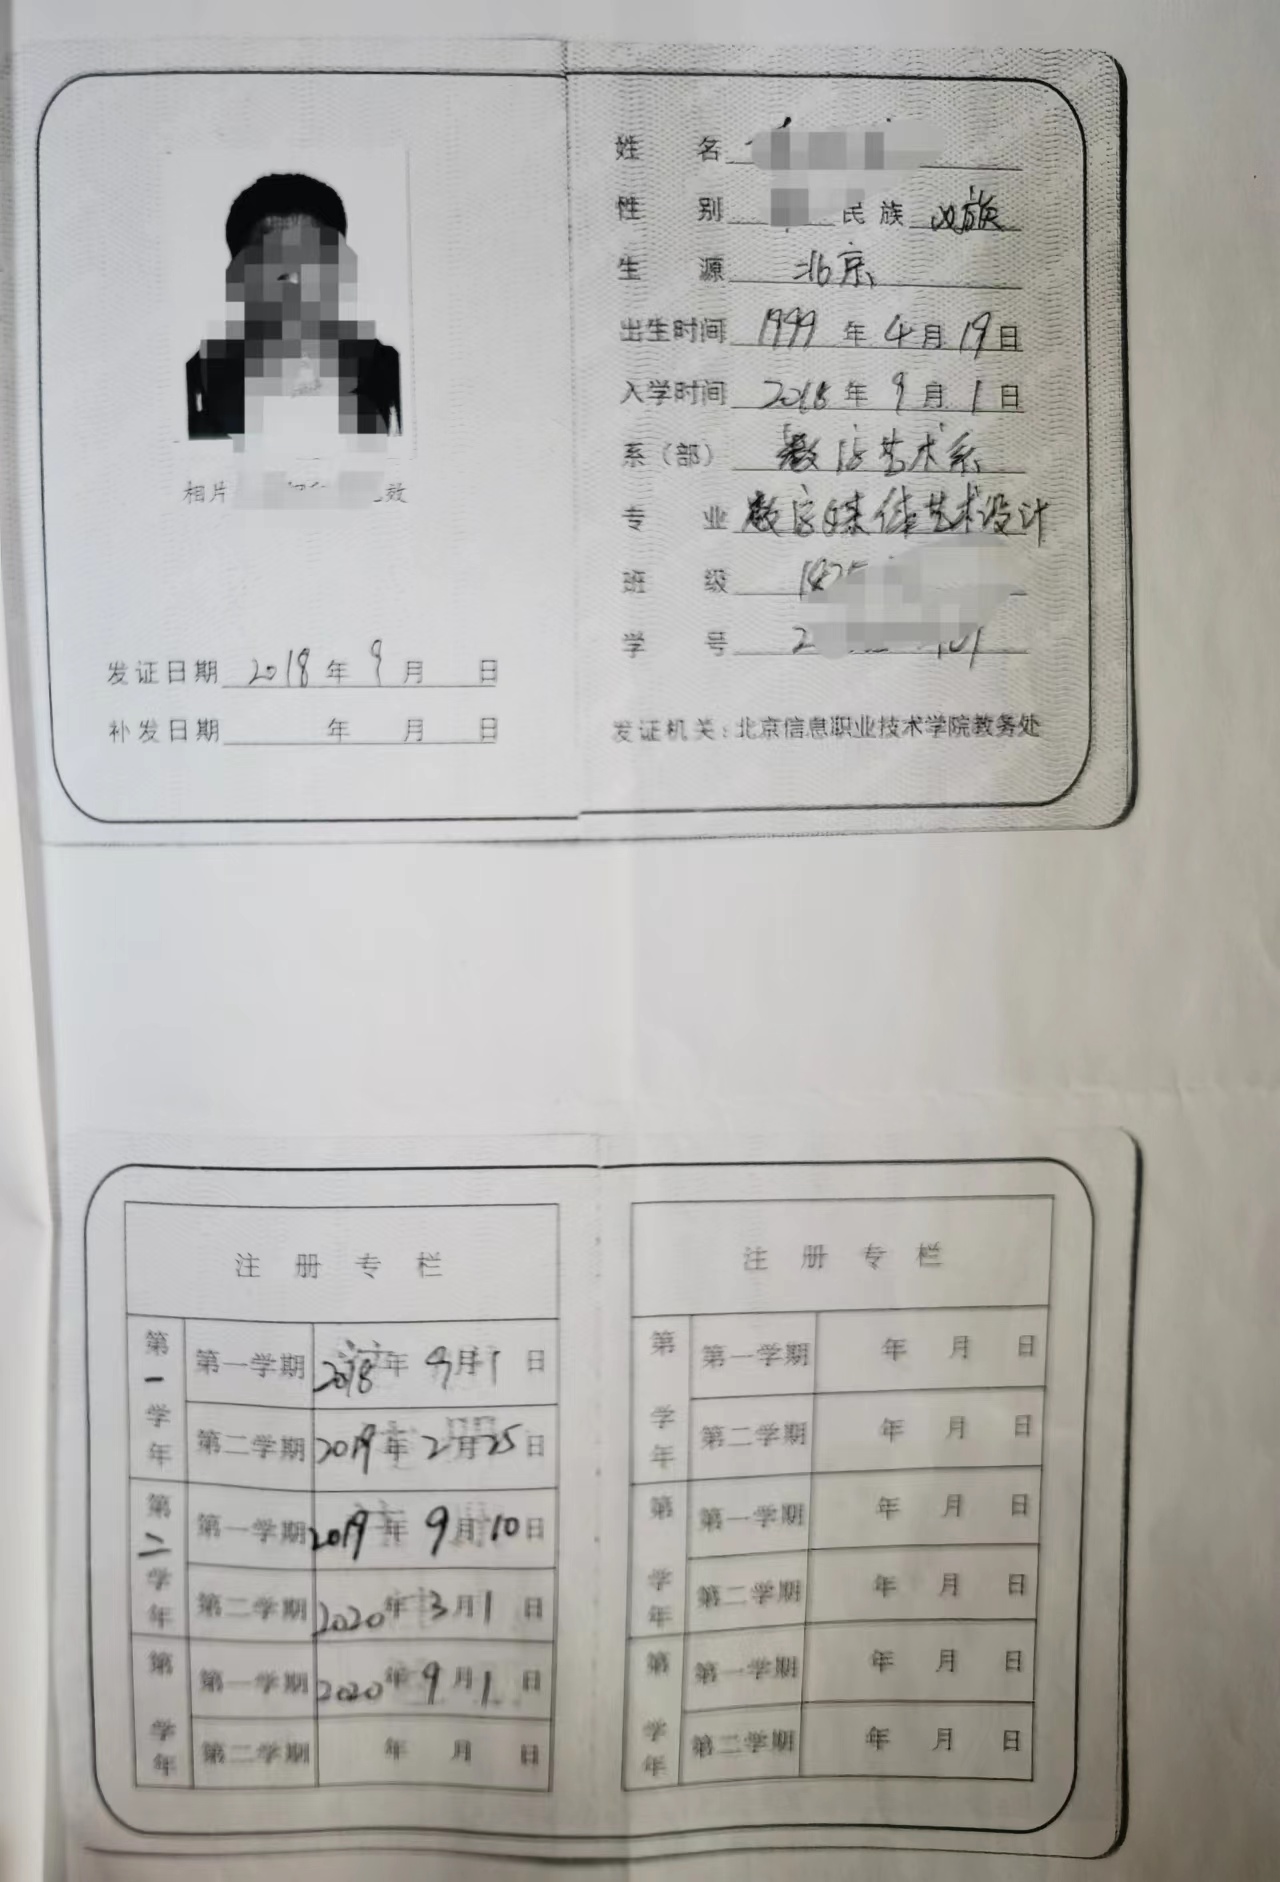 姓 名
性 别 民族 汉族
生 源 北京
出生时间 1999 年 4 月 19 日
入学时间 2018 年 9 月 1 日
系（部） 数字艺术系
专 业 数字媒体艺术设计
班 级
学 号
发证机关：北京信息职业技术学院教务处
相片 效
发证日期 2018 年 9 月 日
补发日期 年 月 日
注 册 专 栏
第一学年
第一学期 2018 年 9 月 1 日
第二学期 2019 年 2 月 25 日
第二学年
第一学期 2019 年 9 月 10 日
第二学期 2020 年 3 月 1 日
第 学年
第一学期 2020 年 9 月 1 日
第二学期 年 月 日
注 册 专 栏
第 学年
第一学期 年 月 日
第二学期 年 月 日
第 学年
第一学期 年 月 日
第二学期 年 月 日
第 学年
第一学期 年 月 日
第二学期 年 月 日